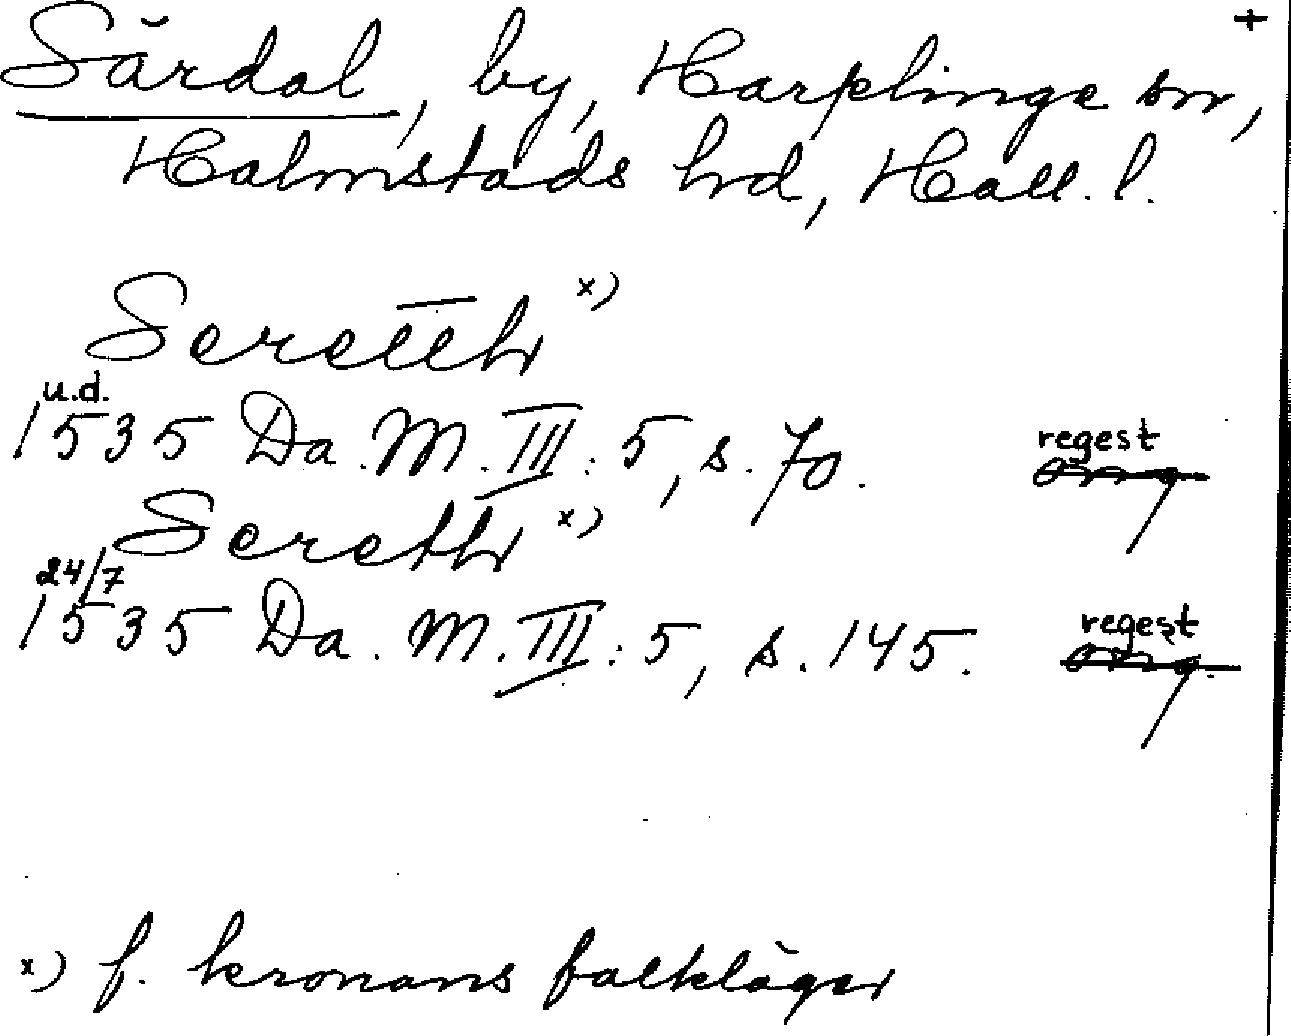 +
Särdal, by, Harplinge sn,
Halmstads hrd, Hall. l.
Seretth x)
u.d.
1535 Da. M. III: 5, s. 70. regest
orig
Sereth x)
24/7
1535 Da. M. III: 5, s. 145. regest
orig.
x) f. kronans falkläger